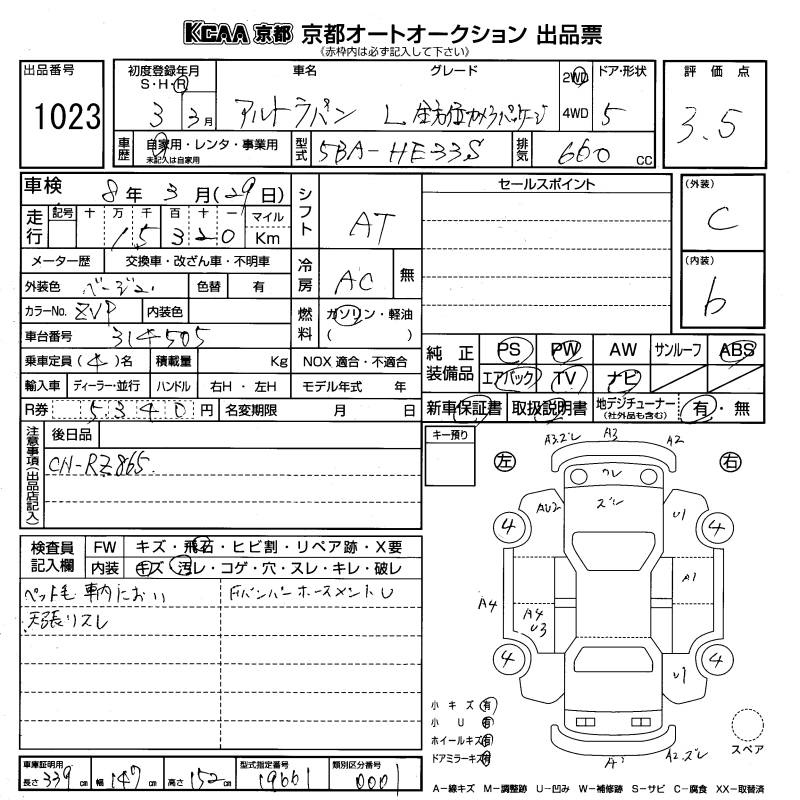 KCAA 京都 京都オートオークション 出品票
(赤枠内は必ず記入して下さい)
出品番号
1023
初度登録年月
S・H・R
3 3月
車名
アルトラパン
グレード
L 全方位カメラパッケージ
2WD
4WD
ドア・形状
5
車歴
自家用・レンタ・事業用
未記入は自家用
型式
5BA-HE33S
排気
660 CC
評価点
3.5
車検
8年 3月(29日)
走行
記号 十 万 千 百 十 一
15320
マイル
Km
シフト
AT
メーター歴 交換車・改ざん車・不明車
外装色 ベージュ 色替 有
冷房
AC 無
カラーNo. ZVP 内装色
燃料
ガソリン・軽油
( )
車台番号 314505
乗車定員(4)名 積載量 Kg NOX 適合・不適合
輸入車 ディーラー・並行 ハンドル 右H・左H モデル年式 年
R券 5340円 名変期限 月 日
セールスポイント
(外装)
C
(内装)
b
純正装備品
PS PW AW サンルーフ ABS
エアバック TV ナビ
新車保証書 取扱説明書 地デジチューナー (社外品も含む) 有・無
注意事項(出品店記入)
後日品
CN-RZ865
キー預り
検査員記入欄
FW キズ・飛石・ヒビ割・リペア跡・X要
内装 キズ・汚レ・コゲ・穴・スレ・キレ・破レ
ペット毛 車内におい
天張リスレ
FバンパーホースメントU
左
右
A3.ズレ A3 A2
ワレ
ズレ
AU2 U1
4 4
A1
A4
A4
U3
4 4
U1
A2.ズレ
小キズ 有
小U 有
ホイールキズ 有
ドアミラーキズ 有
スペア
車庫証明用
長さ 339cm 幅 147cm 高さ 152cm
型式指定番号
19661
類別区分番号
0001
A-線キズ M-調整跡 U-凹み W-補修跡 S-サビ C-腐食 XX-取替済